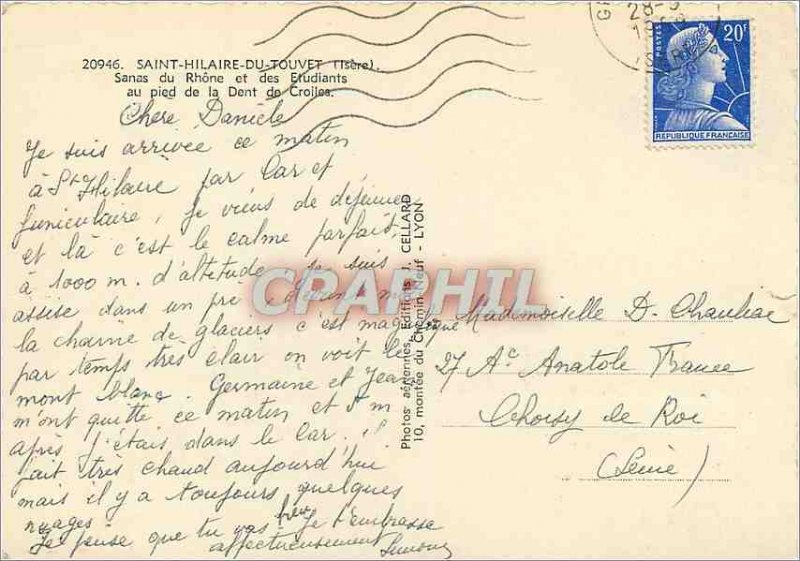 20946. SAINT-HILAIRE-DU-TOUVET (Isère).
Sanas du Rhône et des Etudiants
au pied de la Dent de Crolles.
28-9
POSTES
20F
REPUBLIQUE FRANÇAISE
Chère Danièle
Je suis arrivée ce matin
à St Hilaire par Car et
funiculaire, je viens de déjeuner
et là c'est le calme parfait,
à 1000 m. d'altitude, je suis
assise dans un pré, devant m
la chaine de glaciers c'est magnifique
par temps très clair on voit le
mont blanc. Germaine et Jean
m'ont quitté ce matin et 5 m
après j'étais dans le Car. Il
fait très chaud aujourd'hui
mais il y a toujours quelques
nuages.
Je pense que tu vas bien Je t'embrasse
affectueusement Simone
CPAPHIL
Photos aériennes Editions J. CELLARD
10, montée du Chemin-Neuf - LYON
Mademoiselle D. Chauliac
27 Ac Anatole France
Choisy de Roi
(Seine)